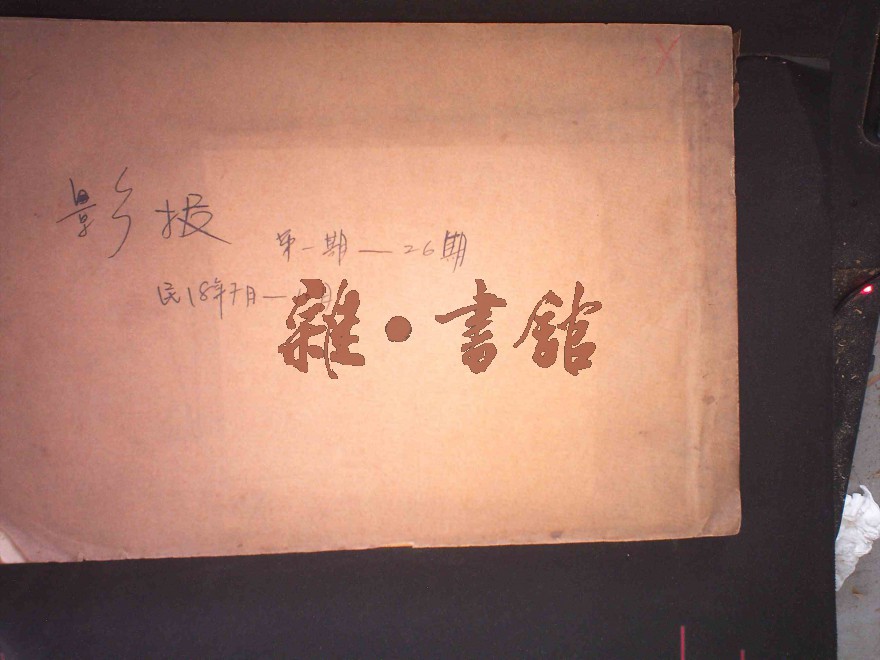 影报
第一期—26期
民18年7月—月
雜·書館